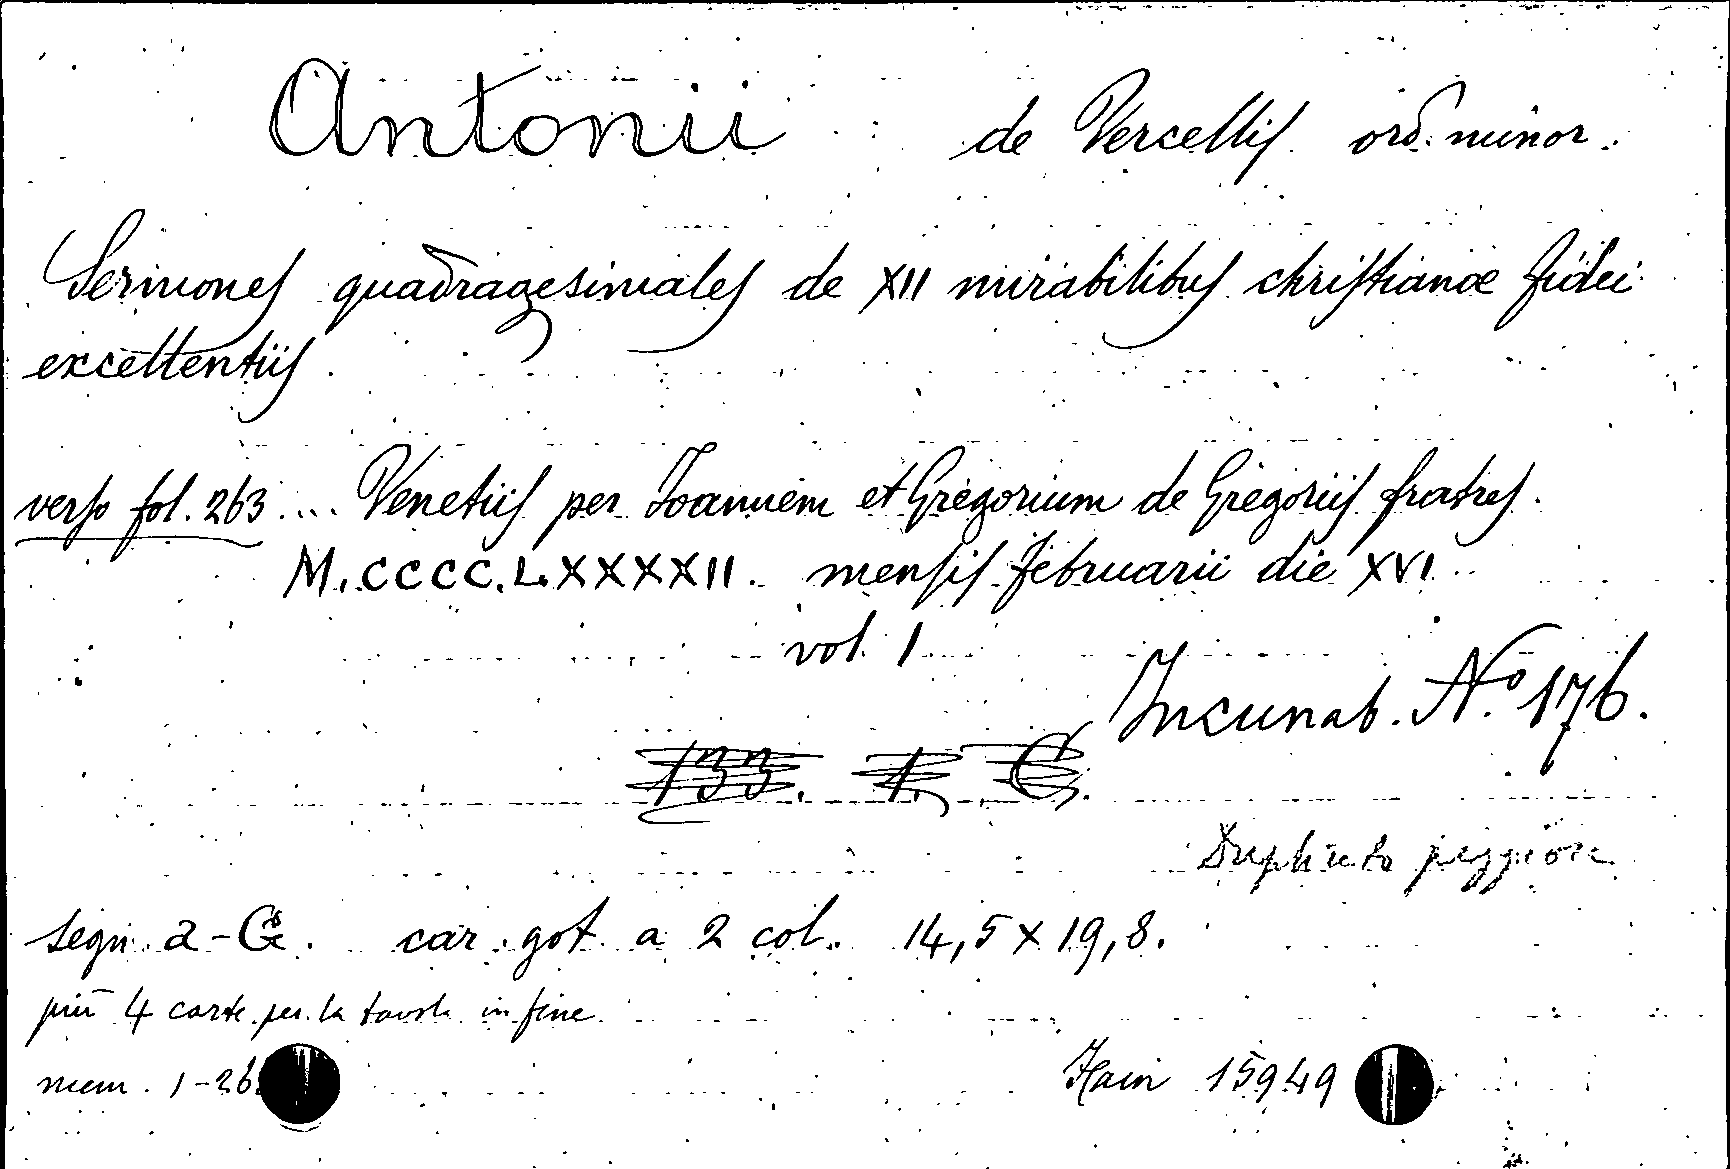 Antonii de Vercellis ord. minor.
Sermones quadragesimales de XII mirabilibus christianæ fidei
excellentiis
verso fol. 263 .... Venetiis per Joannem et Gregorium de Gregoriis fratres.
M.CCCC.LXXXXII. mensis februarii die XVI
vol. 1
Incunab. Nº 176.
133. 1. C.
Duplicato peggiore
segn. a-G. car. got. a 2 col. 14,5 x 19,8.
più 4 carte per la tavola in fine
num. 1-26
Hain 15949